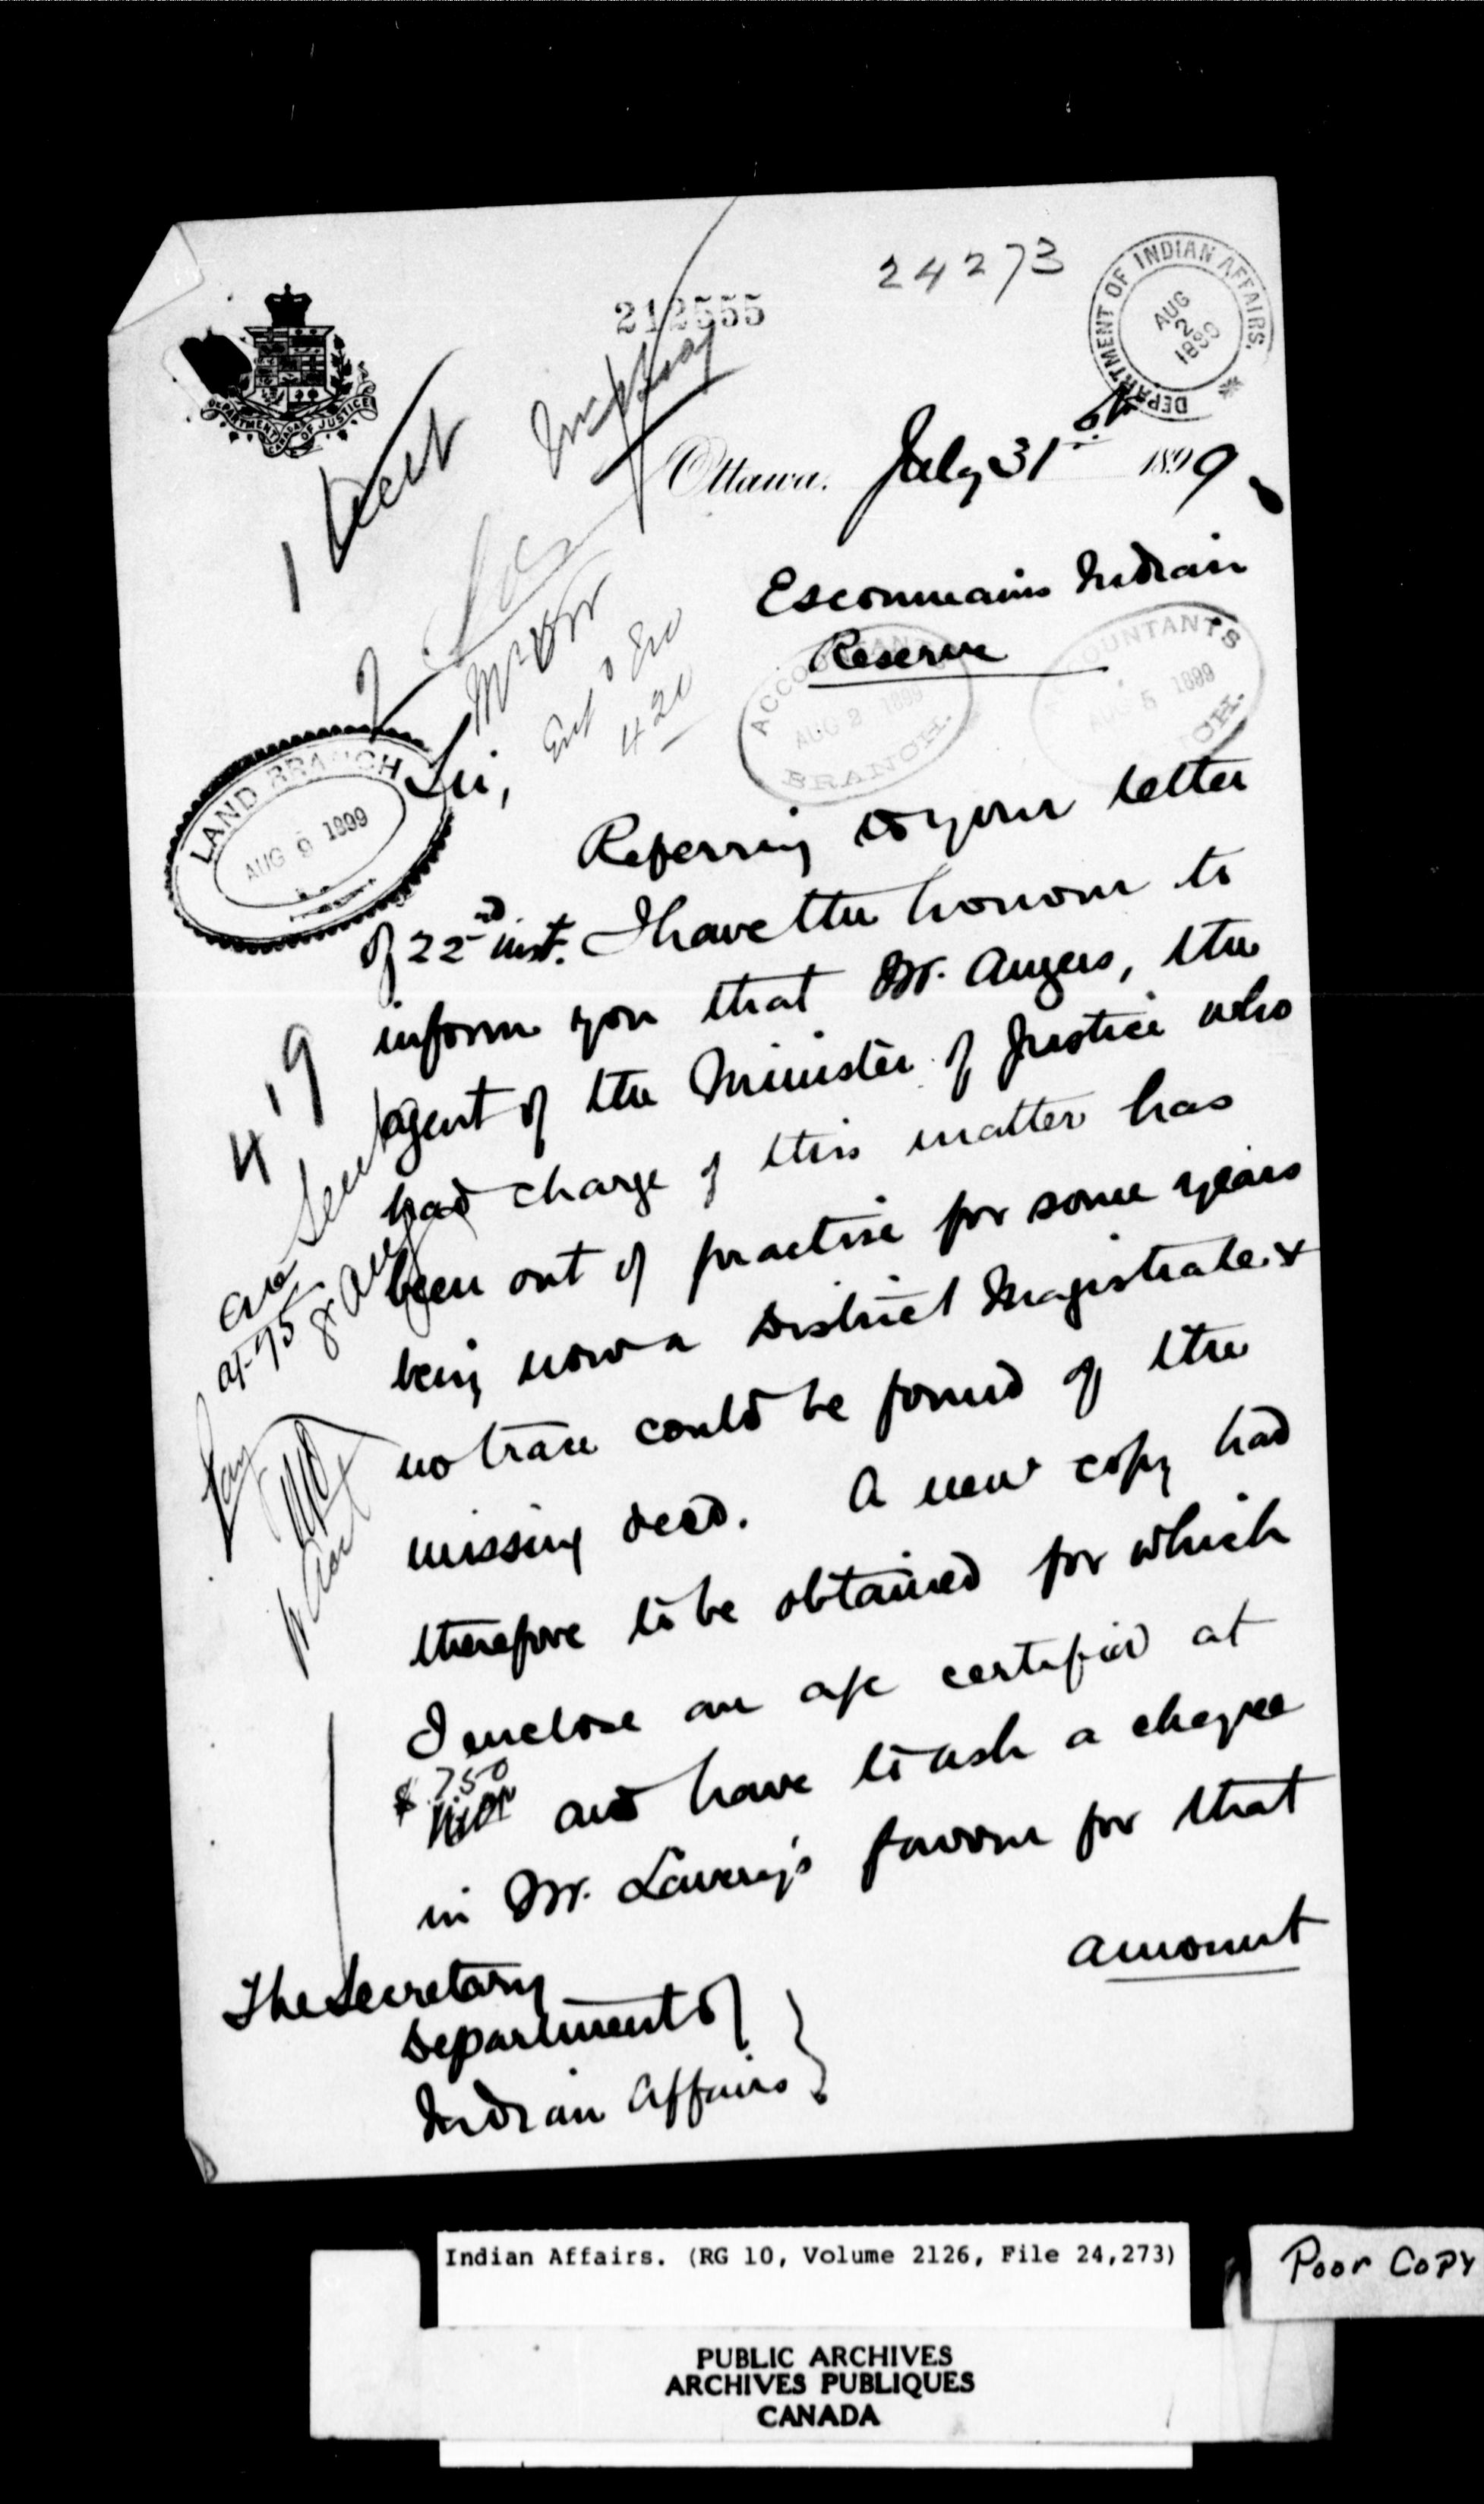 24273
212555
DEPARTMENT OF INDIAN AFFAIRS.
AUG 2 1899
DEPARTMENT OF JUSTICE
CANADA
1 Encl
Ottawa. July 31st 1899.
Escoumains Indian
Reserve
ACCOUNTANT'S
AUG 2 1899
BRANCH.
ACCOUNTANT'S
AUG 5 1899
BRANCH.
Mr Orr
420
LAND BRANCH
AUG 9 1899
Sir,
Referring to your letter
of 22nd inst. I have the honour to
inform you that Mr. Angers, the
agent of the Minister of Justice who
had charge of this matter has
been out of practise for some years
being now a District Magistrate &
no trace could be found of the
missing deed. A new copy had
therefore to be obtained for which
I enclose an a/c certified at
$7.50 and have to ask a cheque
in Mr. Lavery's favour for that
amount
419
The Secretary
Department of
Indian Affairs
Indian Affairs. (RG 10, Volume 2126, File 24,273)
Poor Copy
PUBLIC ARCHIVES
ARCHIVES PUBLIQUES
CANADA